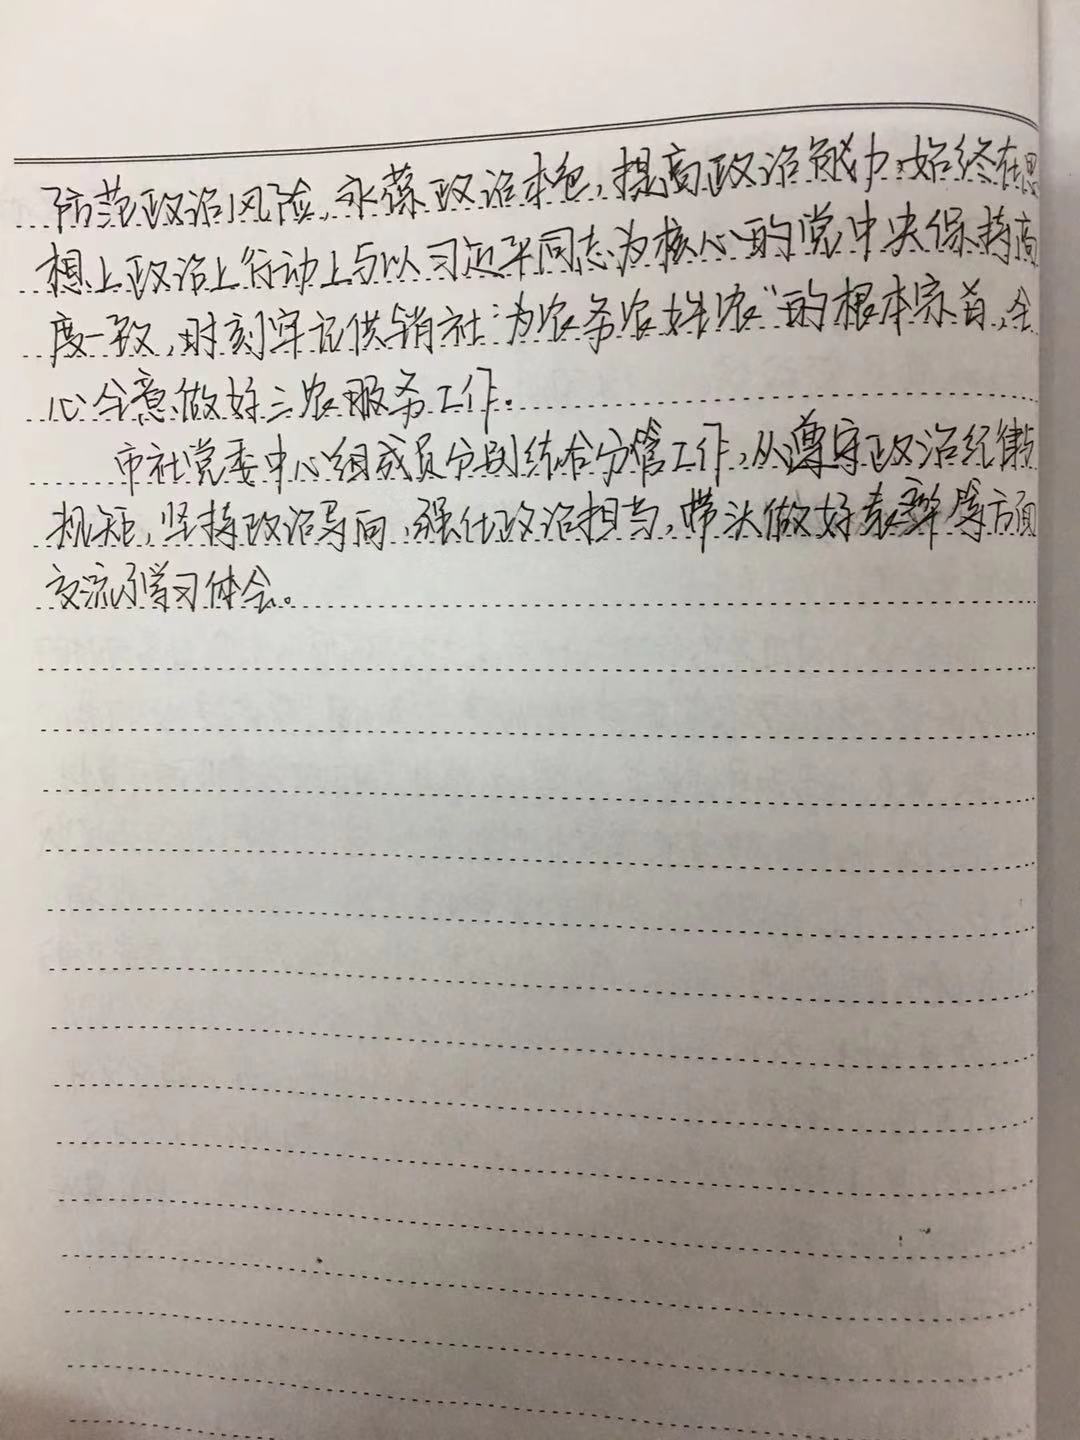 防范政治风险，永葆政治本色，提高政治能力，始终在思
想上政治上行动上与以习近平同志为核心的党中央保持高
度一致，时刻牢记供销社“为农务农姓农”的根本宗旨，全
心全意做好三农服务工作。
市社党委中心组成员分别结合分管工作，从遵守政治纪律与
规矩，坚持政治导向，强化政治担当，带头做好表率等方面
交流了学习体会。